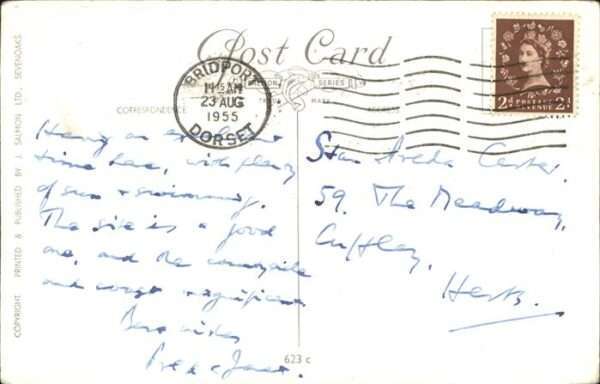 Post Card
SALMON SERIES
TRADE MARK
CORRESPONDENCE
ADDRESS
BRIDPORT
11 15 AM
23 AUG
1955
DORSET
2d POSTAGE REVENUE 2d
COPYRIGHT. PRINTED & PUBLISHED BY J. SALMON LTD., SEVENOAKS.
Having an excellent
time here, with plenty
of sun & swimming.
The site is a good
one, and the countryside
and coast magnificent
Best wishes
Carter.
59. The Meadway,
Cuffley,
Herts.
623 c